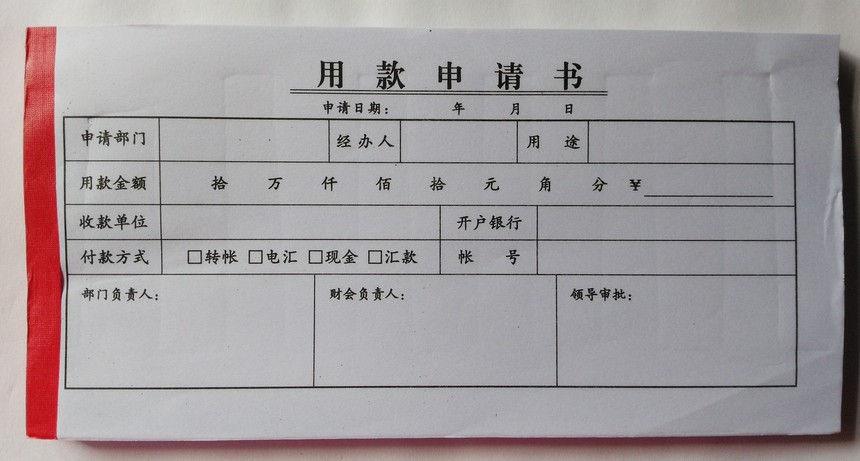 用款申请书
申请日期： 年 月 日
申请部门 经办人 用途
用款金额 拾 万 仟 佰 拾 元 角 分 ¥
收款单位 开户银行
付款方式 □转帐 □电汇 □现金 □汇款 帐号
部门负责人： 财会负责人： 领导审批：